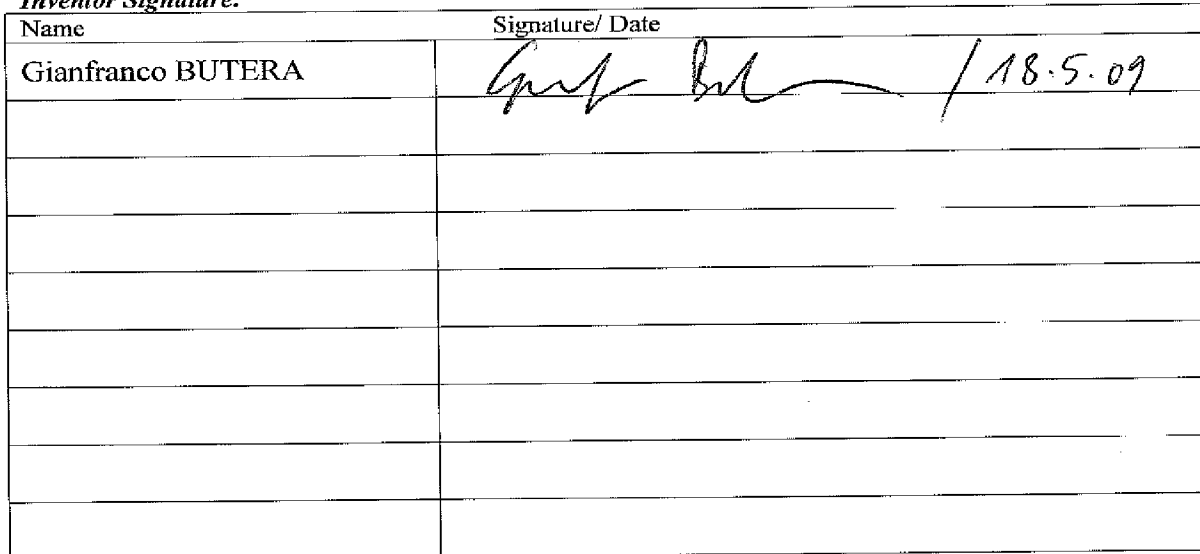 Inventor Signature:
Name Signature/ Date
Gianfranco BUTERA / 18.5.09